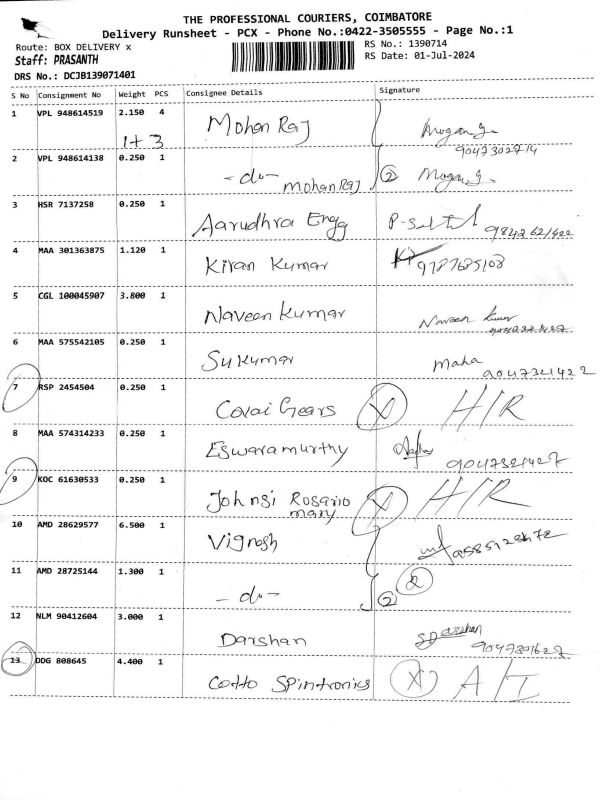 THE PROFESSIONAL COURIERS, COIMBATORE
Delivery Runsheet - PCX - Phone No.:0422-3505555 - Page No.:1
Route: BOX DELIVERY x
RS No.: 1390714
Staff: PRASANTH
RS Date: 01-Jul-2024
DRS No.: DCJB139071401
S No Consignment No Weight PCS Consignee Details Signature
1 VPL 948614519 2.150 4 Mohan Raj
1+3
9047302714
2 VPL 948614138 0.250 1 -do- Mohan Raj 2
3 HSR 7137258 0.250 1 Aarudhra Engg
4 MAA 301363875 1.120 1 Kiran Kumar 9787685108
5 CGL 100045907 3.800 1 Naveen Kumar Naveen Kumar
6 MAA 575542105 0.250 1 Sukumar Maha
9047321422
7 RSP 2454504 0.250 1 Covai Gears X H/R
8 MAA 574314233 0.250 1 Eswaramurthy
9047321427
9 KOC 61630533 0.250 1 Johnsi Rosario Mary X H/R
10 AMD 28629577 6.500 1 Vignesh
11 AMD 28725144 1.300 1 -do- 2 2
12 NLM 90412604 3.000 1 Darshan Darshan
13 DDG 808645 4.400 1 Cotto Spintronics X A/I